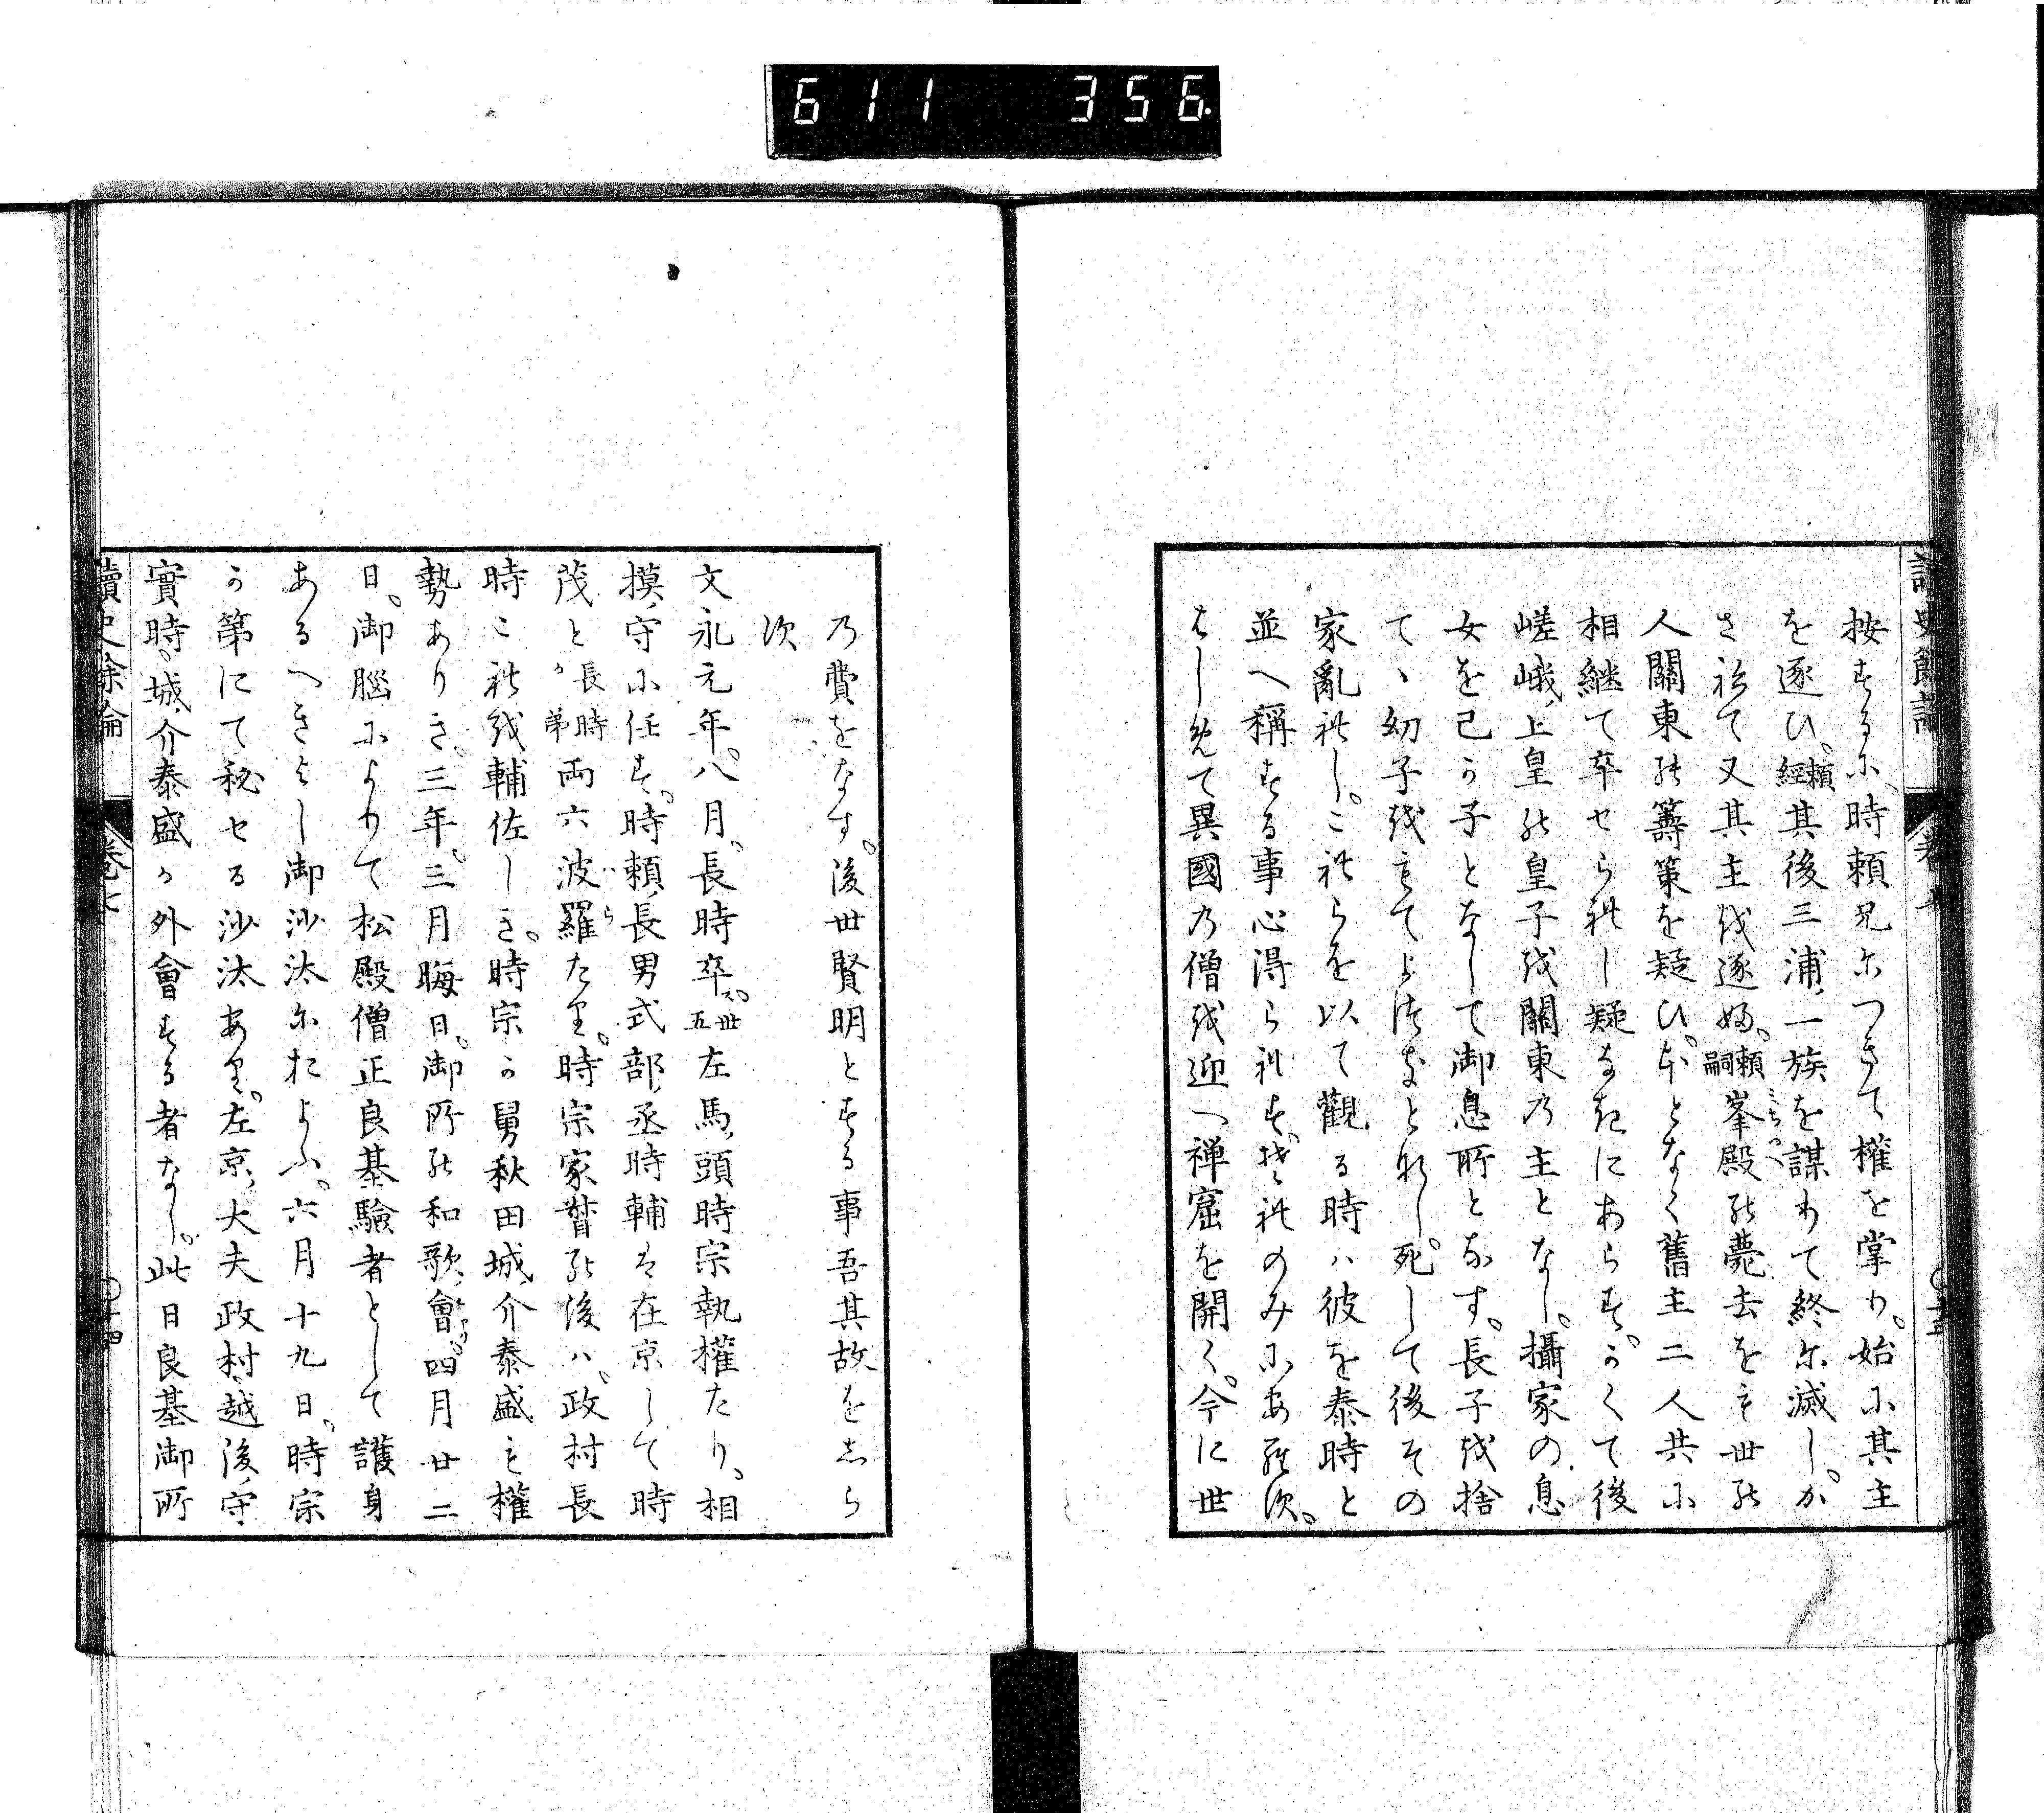 611 356.
按するに時頼兄につきて權を掌り。始に其主
を逐ひ、頼經其後三浦ノ一族を謀りて終に滅し。か
さ祢て又其主を逐ふ。頼嗣峯殿の薨去をも世の
人關東の籌策を疑ひ。ほとなく舊主二人共に
相継て卒せられし疑なきにあらす。かくて後
嵯峨ノ上皇の皇子を關東の主となし。攝家の息
女を己か子となして御息所となす。長子を捨
て、幼子をもてよつきとれし。死して後その
家亂れし。これらを以て觀る時ハ彼を泰時と
並へ稱する事心得られす。それのみにあらす。
はしめて異國の僧を迎へ禅窟を開く。今に世
の費をなす。後世賢明とする事吾其故をしら
す
文永元年。八月。長時卒ス。卅五左馬ノ頭時宗執權たり。相
摸ノ守に任す。時頼ノ長男式部ノ丞時輔は在京して時
茂と長時か弟両六波羅たり。時宗家督の後ハ政村長
時これを輔佐しき。時宗か舅秋田城ノ介泰盛も權
勢ありき。三年。三月晦日。御所の和歌ノ會あり。四月廿二
日。御腦によりて松殿僧正良基驗者として護身
あるへきよし御沙汰におよふ。六月十九日。時宗
か第にて秘せる沙汰あり。左京ノ大夫政村越後ノ守
實時。城ノ介泰盛か外會する者なし。此日良基御所
讀史餘論 卷七 十四